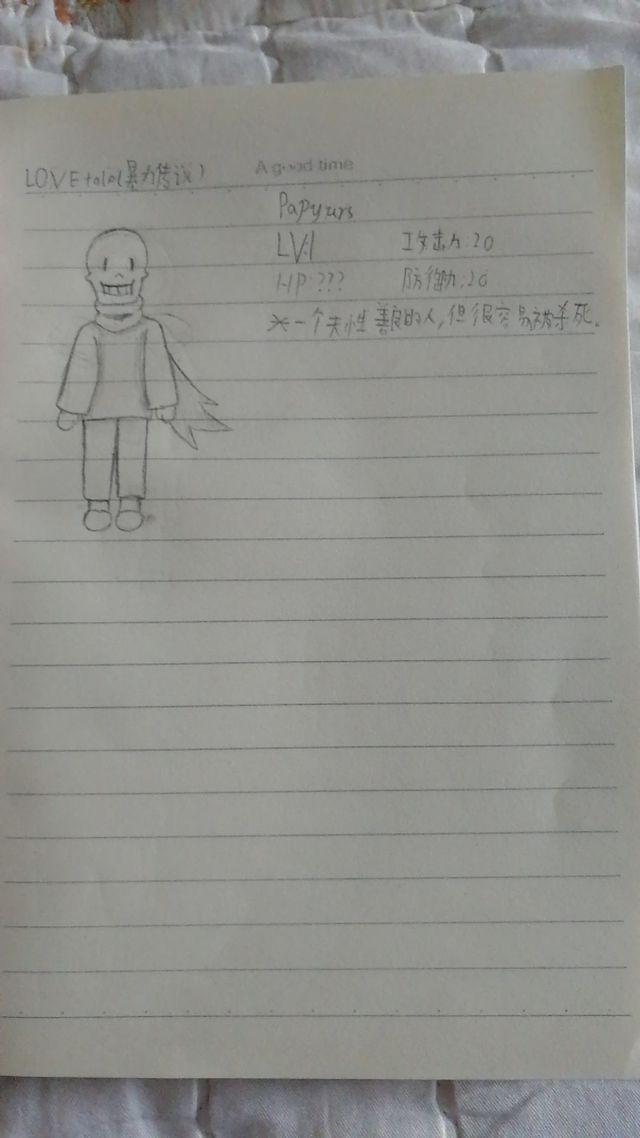 LOVE tale(暴力传说)
A good time
Papyurs
LV.1 攻击力:20
HP:??? 防御力:20
*一个天性善良的人,但很容易被杀死。